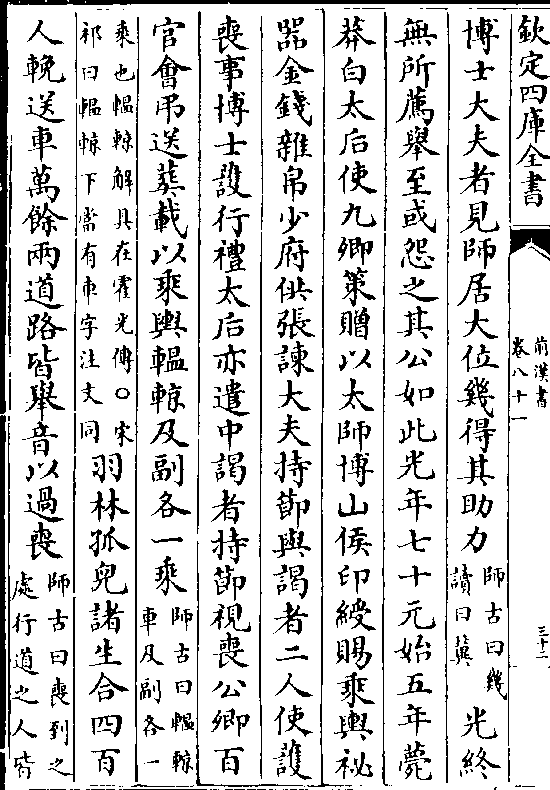 欽定四庫全書
前漢書
卷八十一
三十二
博士大夫者見師居大位幾得其助力師古曰幾讀曰冀光終
無所薦舉至或怨之其公如此光年七十元始五年薨
莽白太后使九卿策贈以太師博山侯印綬賜乘輿祕
器金錢雜帛少府供張諫大夫持節與謁者二人使護
喪事博士護行禮太后亦遣中謁者持節視喪公卿百
官會弔送葬載以乘輿轀輬及副各一乘師古曰轀輬車及副各一
乘也轀輬解具在霍光傳○宋祁曰轀輬下當有車字注文同羽林孤兒諸生合四百
人輓送車萬餘兩道路皆舉音以過喪師古曰喪到之處行道之人皆